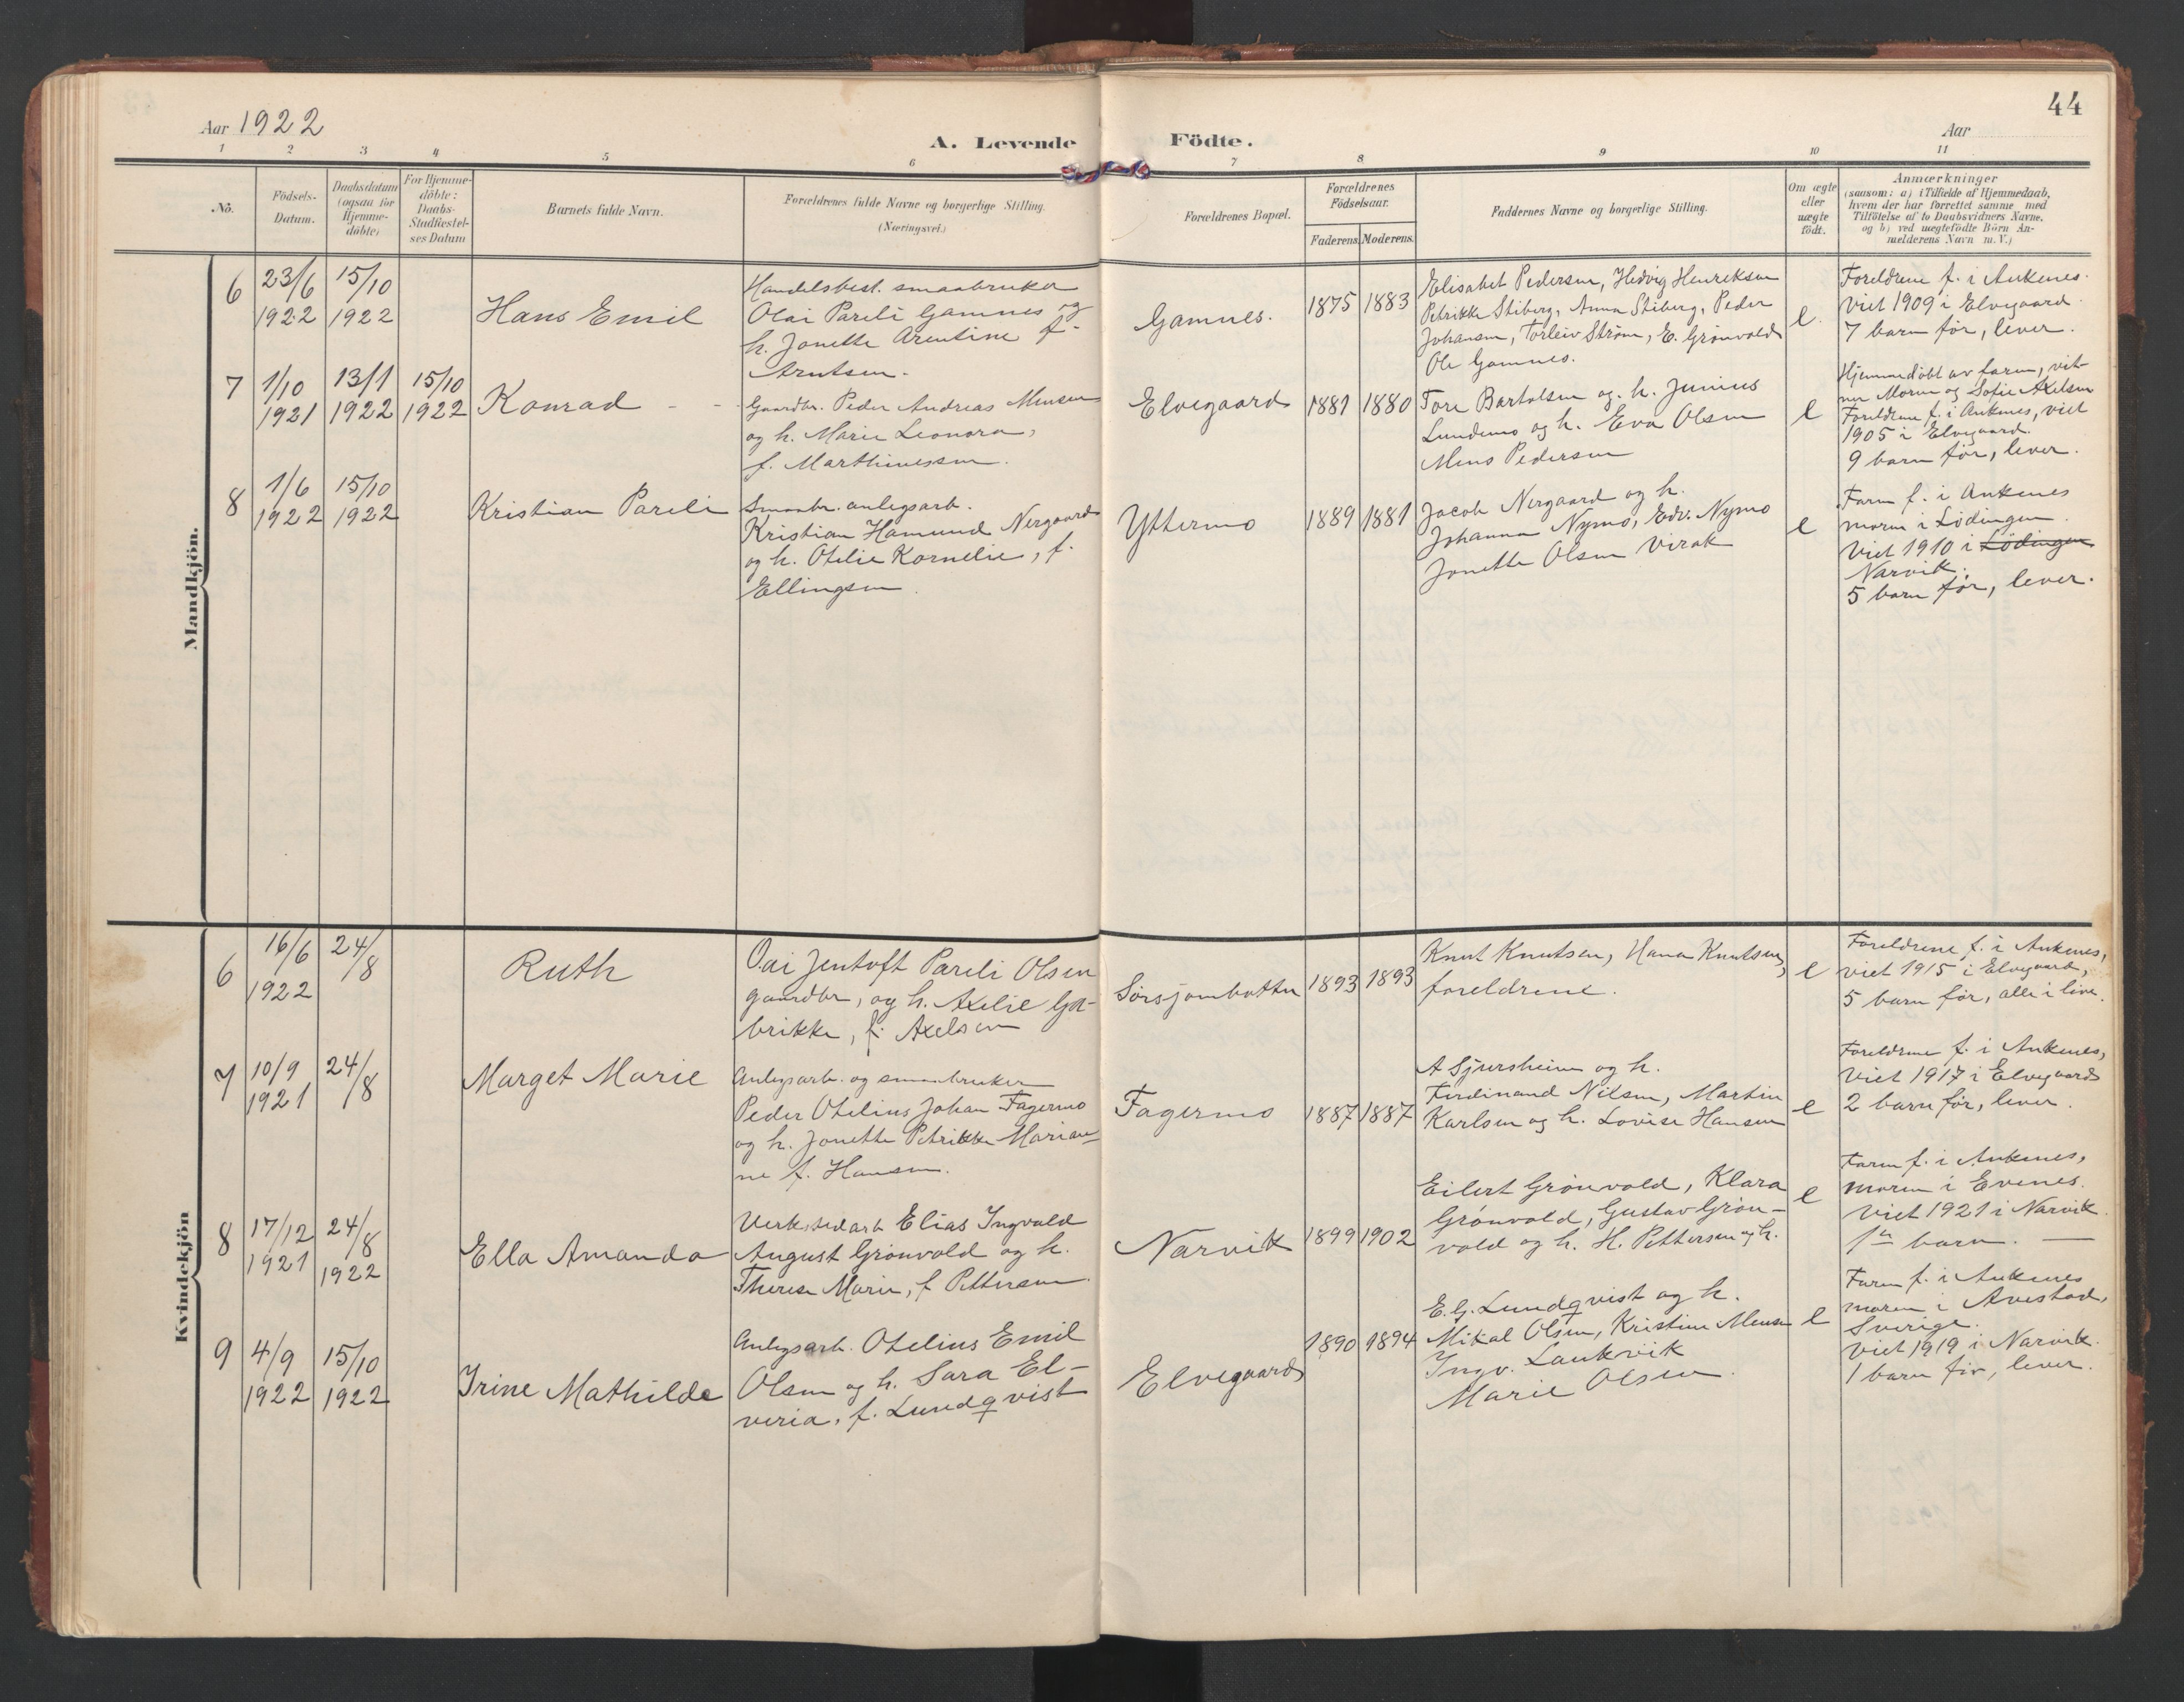 44
Aar 1922
A. Levende Födte.
Aar
1 2 3 4 5 6 7 8 9 10 11
No.
Födsels-
Datum.
Daabsdatum
(ogsaa for
Hjemme-
döbte)
For Hjemme-
döbte:
Daabs-
Stadfæstel-
ses Datum
Barnets fulde Navn.
Forældrenes fulde Navne og borgerlige Stilling.
(Næringsvei.)
Forældrenes Bopæl.
Forældrenes
Födselsaar.
Faderens. Moderens.
Faddernes Navne og borgerlige Stilling.
Om ægte
eller
uægte
födt.
Anmærkninger
(saasom: a) i Tilfælde af Hjemmedaab,
hvem der har forrettet samme med
Tilföielse af to Daabsvidners Navne.
og b) ved uægtefödte Börn An-
melderens Navn m. V.)
Mandkjön.
6
23/6
1922
15/10
1922
Hans Emil
Handelsbest. smaabruker
Olai Pareli Gamnes og
h. Jonette Arentine f.
Arntsen.
Gamnes.
1875 1883
Elisabet Pedersen, Hedvig Henriksen
Petrikke Stiberg, Anna Stiberg, Peder
Johansen, Torleiv Strøm, E. Grønvold
Ole Gamnes.
e.
Foreldrene f. i Ankenes.
Viet 1909 i Elvegaard.
7 barn før, lever.
7
1/10
1921
13/1
1922
15/10
1922
Konrad - -
Gaardbr. Peder Andreas Mensen
og h. Marie Leonora,
f. Marthinessen.
Elvegaard
1881 1880
Tore Bartolsen og h. Junius
Lundemo og h. Eva Olsen
Mens Pedersen
e
Hjemmedøbt av faren, vit-
ner Moren og Sofie Axelsen
Foreldrene f. i Ankenes, viet
1905 i Elvegaard.
9 barn før, lever.
8
1/6
1922
15/10
1922
Kristian Pareli
Smaabr. anlegsarb.
Kristian Hamund Nergaard
og h. Otelie Kornelie, f.
Ellingsen.
Yttermo
1889 1881
Jacob Nergaard og h.
Johanna Nymo, Edv. Nymo
Jonette Olsen Virak
e
Faren f. i Ankenes
moren i Lødingen.
Viet 1910 i Lødingen
Narvik.
5 barn før, lever.
Kvindekjön
6
16/6
1922
24/8
Ruth
Oai Jentoft Pareli Olsen
gaardbr, og h. Axelie Ga-
brikke, f. Axelsen
Sørsjombotten
1893 1893
Knut Knutsen, Hana Knutsen,
foreldrene.
e
Foreldrene f. i Ankenes,
viet 1915 i Elvegaard,
5 barn før, alle i live.
7
10/9
1921
24/8
Marget Marie
Anlegsarb. og smaabruker
Peder Otelius Johan Fagermo
og h. Jonette Petrikke Marian-
ne f. Hansen.
Fagermo
1887 1887
A Sjursheim og h.
Ferdinand Nilsen, Martin
Karlsen og h. Lovise Hansen
e
Foreldrene f. i Ankenes,
Viet 1917 i Elvegaard
2 barn før, lever.
8
17/12
1921
24/8
1922
Ella Amanda
Verkstedarb Elias Ingvald
August Grønvold og h.
Therese Marie, f Pettersen.
Narvik
1899 1902
Eilert Grønvold, Klara
Grønvold, Gustav Grøn-
vold og h. H. Pettersen og h.
e
Faren f. i Ankenes,
moren i Evenes.
viet 1921 i Narvik.
1ste barn. —
9
4/9
1922
15/10
1922
Irine Mathilde
Anlegsarb. Otelius Emil
Olsen og h. Sara El-
veria, f. Lundqvist
Elvegaard
1890 1894
E. G. Lundqvist og h.
Mikal Olsen, Kristine Mensen
Ingv. Lankvik
Marie Olsen.
e
Faren f. i Ankenes
moren i Avestad,
Sverige.
Viet 1919 i Narvik.
1 barn før, lever.